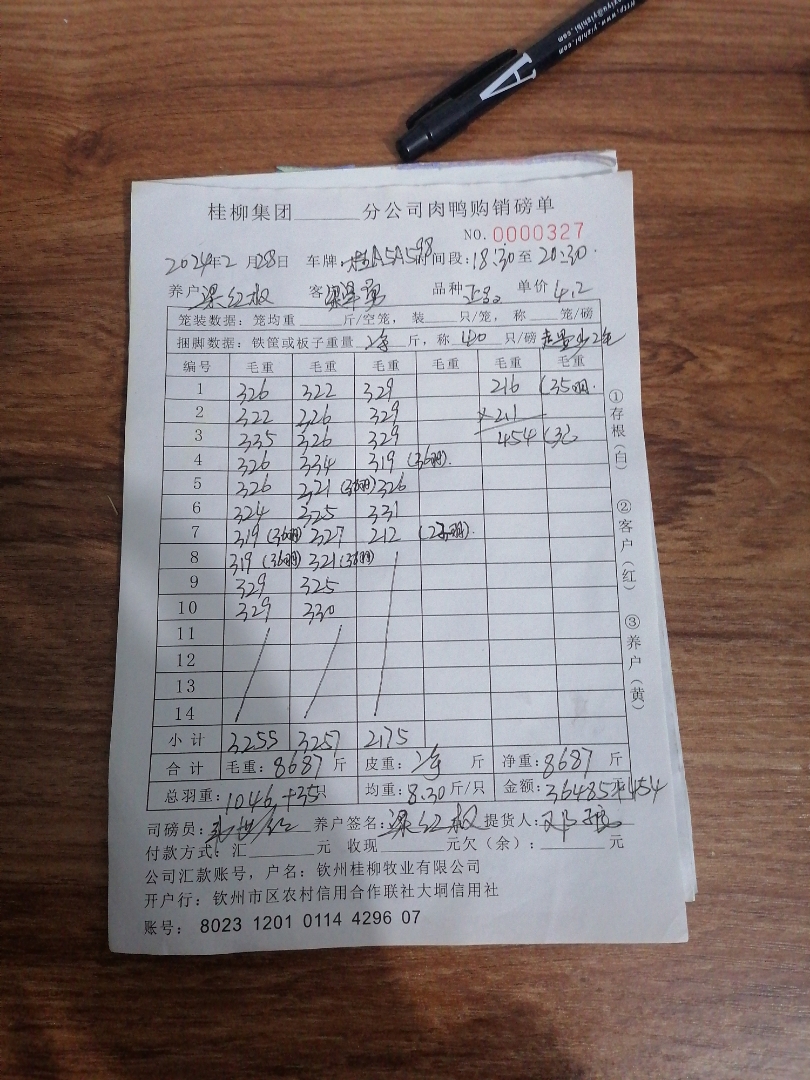 Http:www.yizhibi.com
桂柳集团______分公司肉鸭购销磅单
NO. 0000327
2024年2月28日 车牌:桂A5A598 时间段:18:30至20:30.
养户梁红权 客 品种正品 单价4.2
笼装数据:笼均重______斤/空笼,装___只/笼,称___笼/磅
捆脚数据:铁筐或板子重量 净 斤,称40只/磅
编号 毛重 毛重 毛重 毛重 毛重 毛重
1 326 322 329 216 (35羽.
2 322 326 329 ×2.1
3 335 326 329 454
4 326 334 319 (36羽).
5 326 321 (36羽) 326
6 324 325 331
7 319 (36羽) 327 212
8 319 (36羽) 321 (36羽)
9 329 325
10 329 330
11
12
13
14
小计 3255 3257 2175
合计 毛重:8687斤 皮重:净 斤 净重:8687斤
总羽重:1046+35只 均重:8.30斤/只 金额:36485元+454
司磅员: 养户签名:梁红权 提货人:
付款方式:汇______元 收现______元欠(余):______元
公司汇款账号,户名:钦州桂柳牧业有限公司
开户行:钦州市区农村信用合作联社大垌信用社
账号: 8023 1201 0114 4296 07
①存根(白)
②客户(红)
③养户(黄)